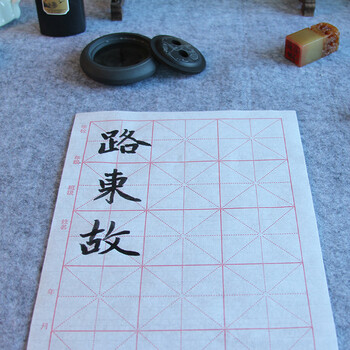 路東故